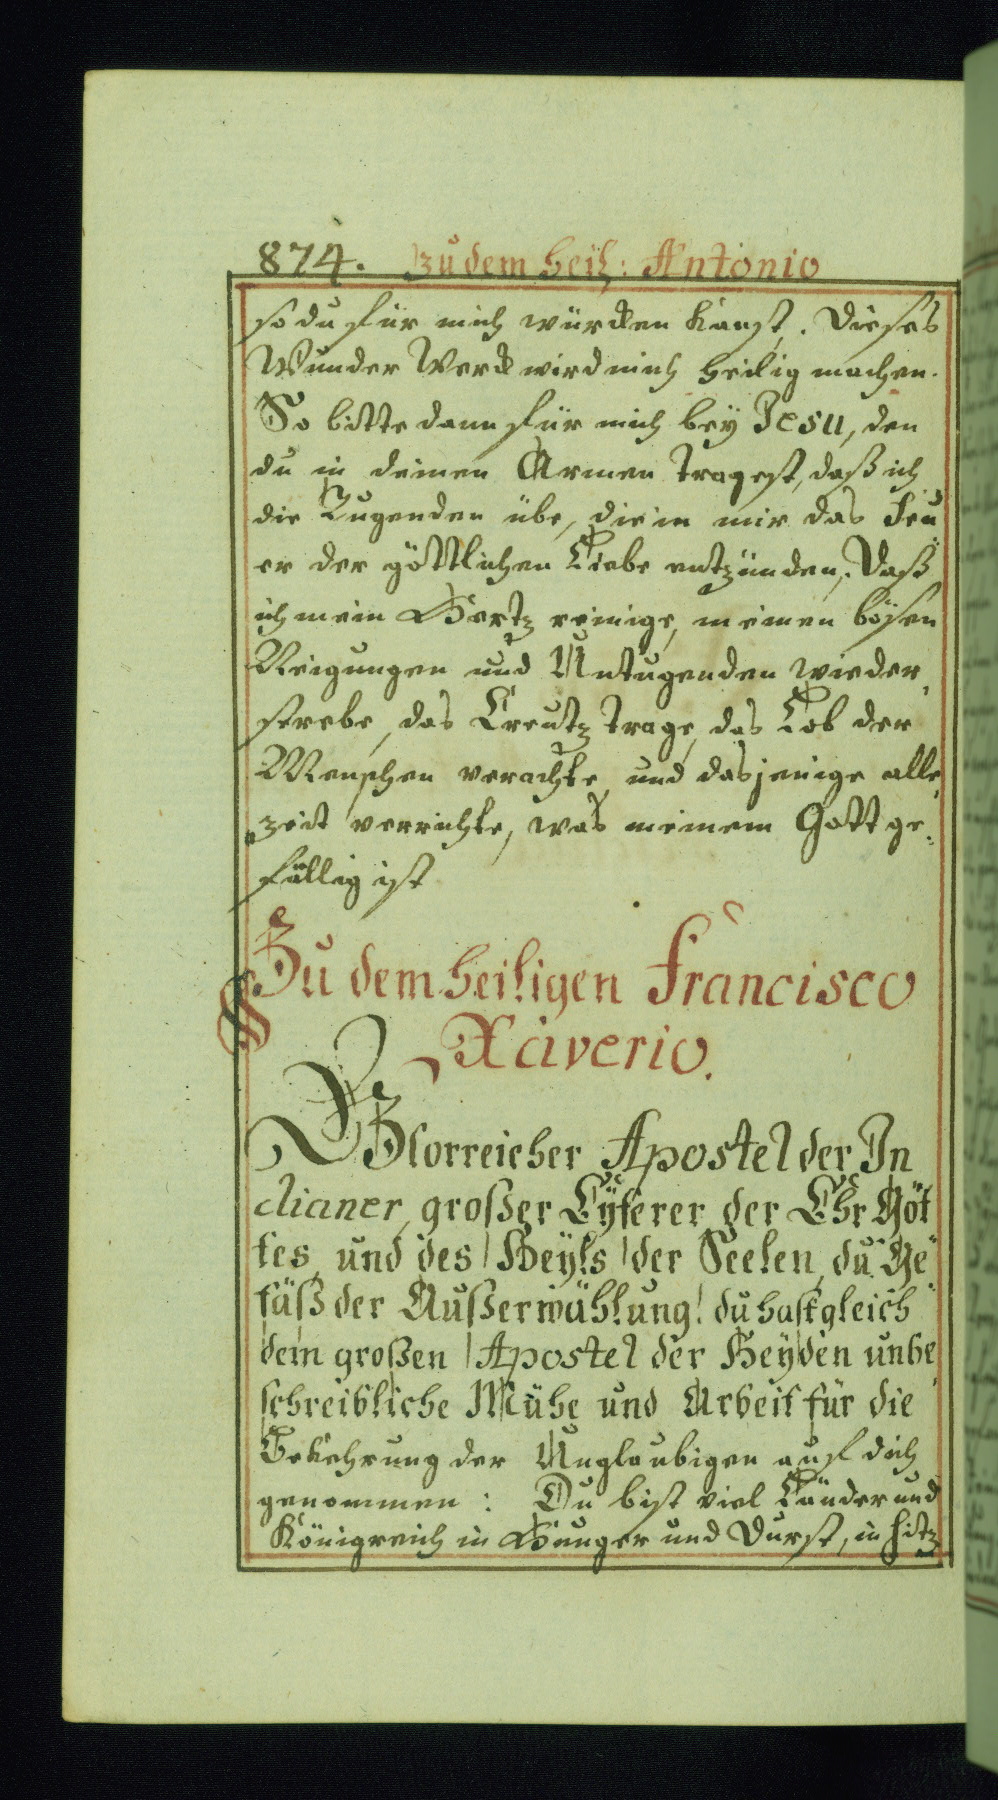 874. Zu dem heil: Antonio
so du für mich würcken kanst. Dieses
Wunder Werck wird mich heilig machen.
So bitte dann für mich bey Jesu, den
du in deinen Armen tragest, daß ich
die Tugenden übe, die in mir das Feu„
er der göttlichen Liebe entzünden, daß
ich mein Hertz reinige, meinen bösen
Neigungen und Untugenden wieder„
strebe, das Creutz trage, das Lob der
Menschen verachte, und dasjenige alle„
zeit verrichte, was meinem Gott ge„
fällig ist
Zu dem heiligen Francisco
Xaverio.
Glorreicher Apostel der In
dianer, großer Eyferer der Ehr Got
tes, und des Heyls der Seelen, du Ge„
fäß der Außerwählung! du hast gleich
dem großen Apostel der Heyden unbe„
schreibliche Mühe und Arbeit für die
Bekehrung der Unglaubigen auf dich
genommen: Du bist viel Länder und
Königreich in Hunger und Durst, in Hitz